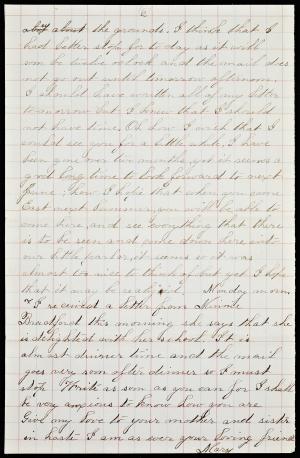 6
about the grounds. I think that I
had better stop for to day as it will
soon be twelve oclock and the mail does
not go out until tomorrow afternoon.
I should have written all of my letter
tomorrow but I knew that I should
not have time. Oh how I wish that I
could see you for a little while, I have
been gone over two months, yet it seems a
good long time to look forward to next
June. How I hope that when you come
East next Summer, you will be able to
come here, and see everything that there
is to be seen and come down here into
our little parlor, it seems so it was
almost too nice to think of but yet I hope
that it may be realized. Monday morn.
I received a letter from Minnie
Bradford this morning she says that she
is delighted with her school. It is
almost dinner time and the mail
goes very soon after dinner so I must
stop. Write as soon as you can for I shall
be very anxious to know how you are
Give my love to your mother and sister
in haste I am as ever your loving friend
Mary